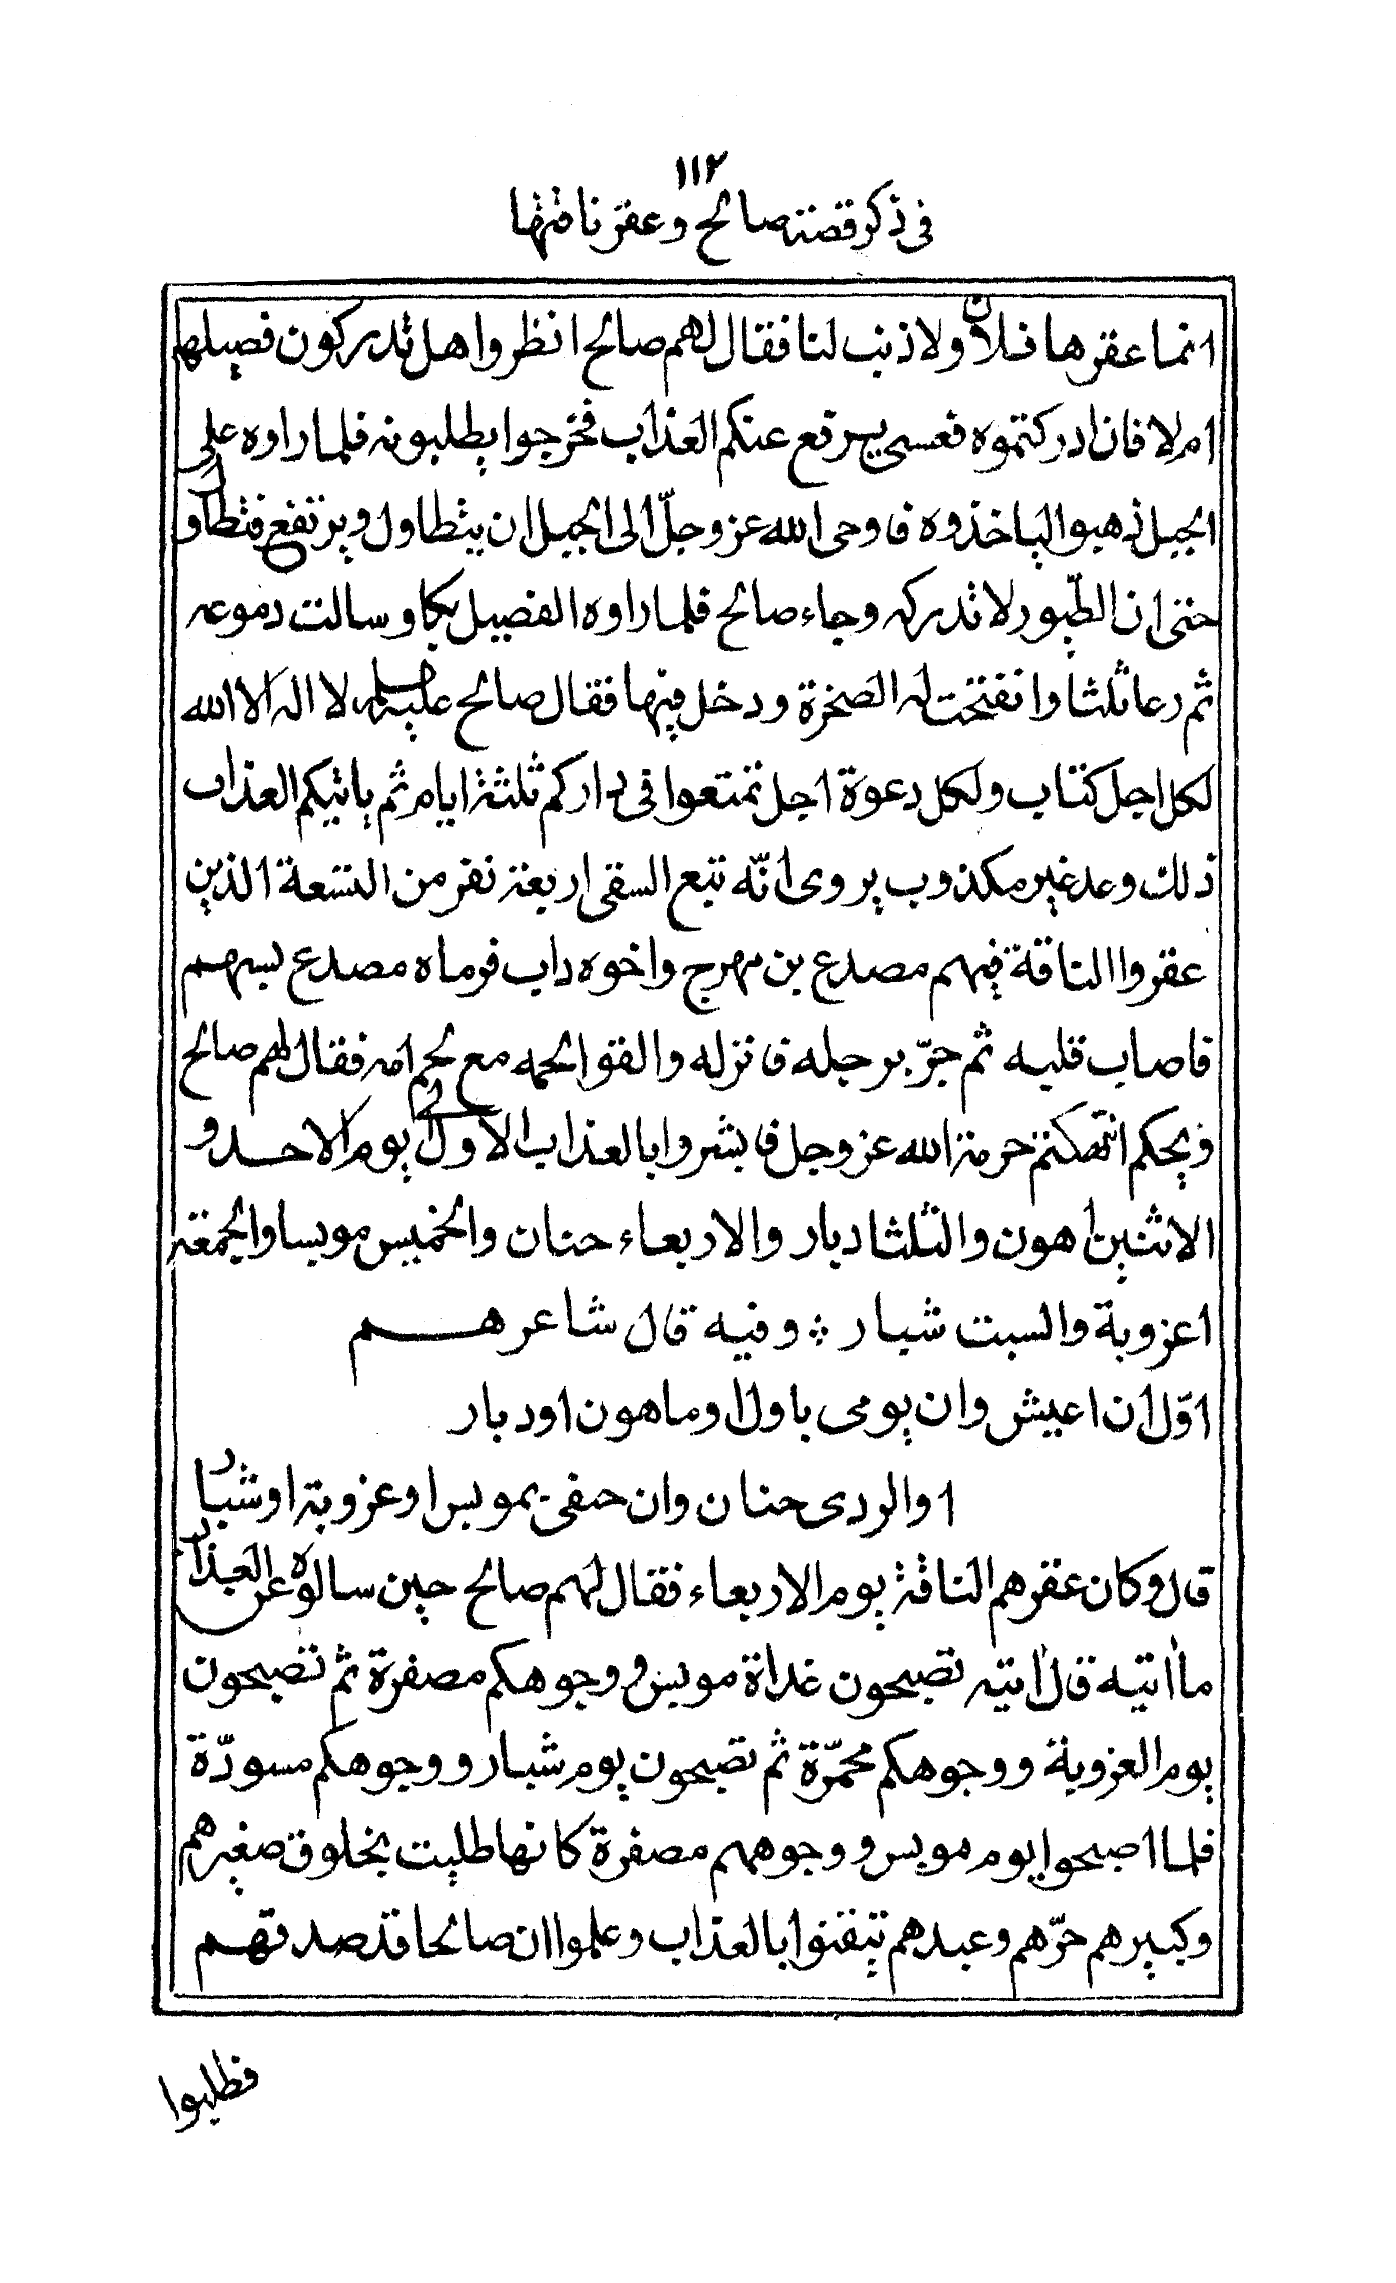 ١١٢
في ذكر قصة صالح وعقر ناقتها
انما عقرها فلان ولا ذنب لنا فقال لهم صالح انظروا هل تدركون فصيلها
ام لا فان ادركتموه فعسى يرفع عنكم العذاب فخرجوا يطلبونه فلما راوه على
الجبل ذهبوا لياخذوه فاوحى الله عز وجلّ الى الجبل ان يتطاول ويرتفع فتطاول
حتى ان الطّيور لا تدركه وجاء صالح فلما راوه الفصيل بكا وسالت دموعه
ثم دعا ثلثا وانفتحت له الصخرة ودخل فيها فقال صالح عليه السلم لا اله الا الله
لكل اجل كتاب ولكل دعوة اجل تمتعوا في داركم ثلثة ايام ثم ياتيكم العذاب
ذلك وعد غير مكذوب يروى انّه تبع السقى اربعة نفر من التسعة الذين
عقروا الناقة فيهم مصدع بن مهرج واخوه داب فرماه مصدع بسهم
فاصاب قلبه ثم جرّ برجله فانزله والقوا لحمه مع لحم امه فقال لهم صالح
ويحكم انتهكتم حرمة الله عز وجل فابشروا بالعذاب الاول يوم الاحد و
الاثنين اهون والثلثا دبار والاربعاء حنان والخميس مويسا والجمعة
اعزوبة والسبت شبار ؞ وفيه قال شاعرهم
اوّل ان اعيش وان يومى باول او ماهون او دبار
او الردى حنان وان حفى بمويس او عزوبة او شبار
قال وكان عقرهم الناقة يوم الاربعاء فقال لهم صالح حين سالوه عن العذاب
ما اتيه قال اتيه تصبحون غداة مويس ووجوهكم مصفرة ثم تصبحون
يوم العزوبة ووجوهكم محمّرة ثم تصبحون يوم شبار ووجوهكم مسودّة
فلما اصبحوا يوم مويس ووجوههم مصفرة كانها طليت بخلوق صغيرهم
وكبيرهم حرّهم وعبدهم تيقنوا بالعذاب وعلموا ان صالحا قد صدقهم
فطلبوا